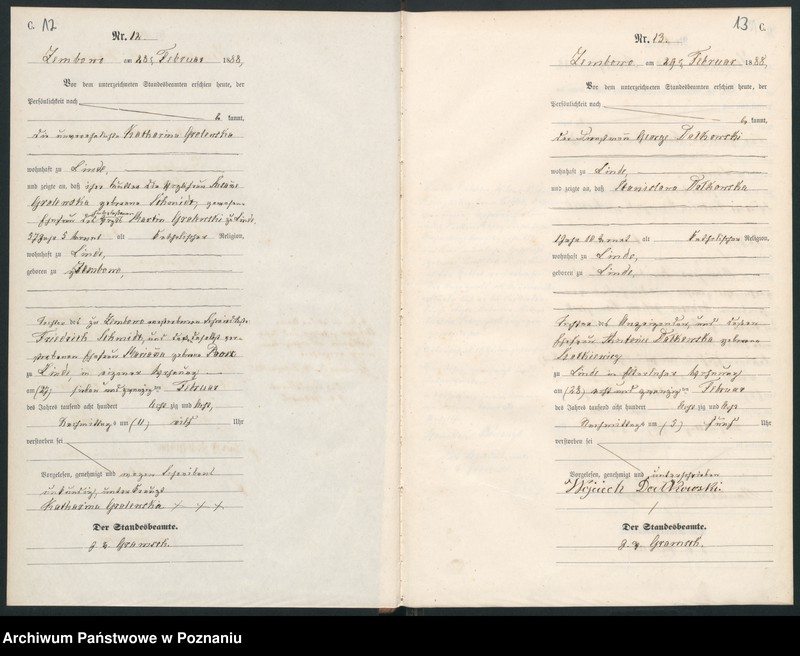 C. 12
Nr. 12.
Zembowo am 28. Februar 1888,
Vor dem unterzeichneten Standesbeamten erschien heute, der
Persönlichkeit nach
be kannt,
die unverehelichte Katharina Gralewska
wohnhaft zu Linde,
und zeigte an, daß ihre Mutter die
Gralewska geborene Schmidt, gewesene
Ehefrau des Martin Gralewski zu Linde,
57 Jahr 5 Monat alt Katholischer Religion,
wohnhaft zu Linde,
geboren zu Zembowo,
Tochter des zu Zembowo verstorbenen
Friedrich Schmidt, und der daselbst ver-
storbenen Ehefrau Mariana geborne
zu Linde, in eigener Wohnung
am (27) sieben und zwanzig ten Februar
des Jahres tausend acht hundert acht zig und acht,
Nachmittags um (11) elf Uhr
verstorben sei
Vorgelesen, genehmigt und wegen Schreibens
unkundig, unterkreuzt
Katharina Gralewska + + +
Der Standesbeamte.
Gramsch.
13 C.
Nr. 13.
Zembowo am 29. Februar 1888,
Vor dem unterzeichneten Standesbeamten erschien heute, der
Persönlichkeit nach
be kannt,
der Georg Datkowski
wohnhaft zu Linde,
und zeigte an, daß Stanislawa Datkowska
1 Jahr 10 Monat alt Katholischer Religion,
wohnhaft zu Linde,
geboren zu Linde,
Tochter des Anzeigenden, und dessen
Ehefrau Datkowska geborene
zu Linde in Wohnung
am (28) acht und zwanzig ten Februar
des Jahres tausend acht hundert acht zig und acht
Nachmittags um (5) fünf Uhr
verstorben sei
Vorgelesen, genehmigt und unterschrieben
Wojciech Datkowski.
Der Standesbeamte.
Gramsch.
Archiwum Państwowe w Poznaniu